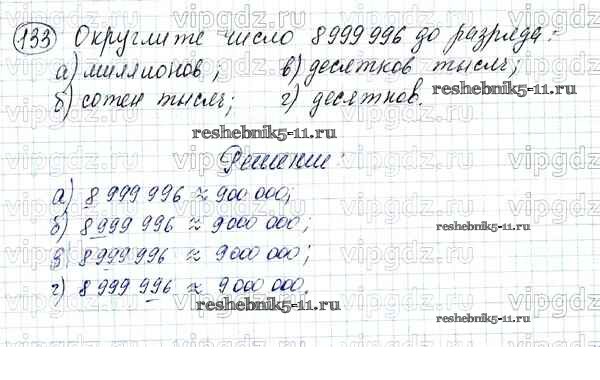 133 Округлите число 8 999 996 до разряда:
а) миллионов; в) десятков тысяч;
б) сотен тысяч; г) десятков.
reshebnik5-11.ru
Решение:
а) 8 999 996 ≈ 900 000;
б) 8 999 996 ≈ 9 000 000;
reshebnik5-11.ru
в) 8 999 996 ≈ 9 000 000;
г) 8 999 996 ≈ 9 000 000.
reshebnik5-11.ru
reshebnik5-11.ru
vipgdz.com